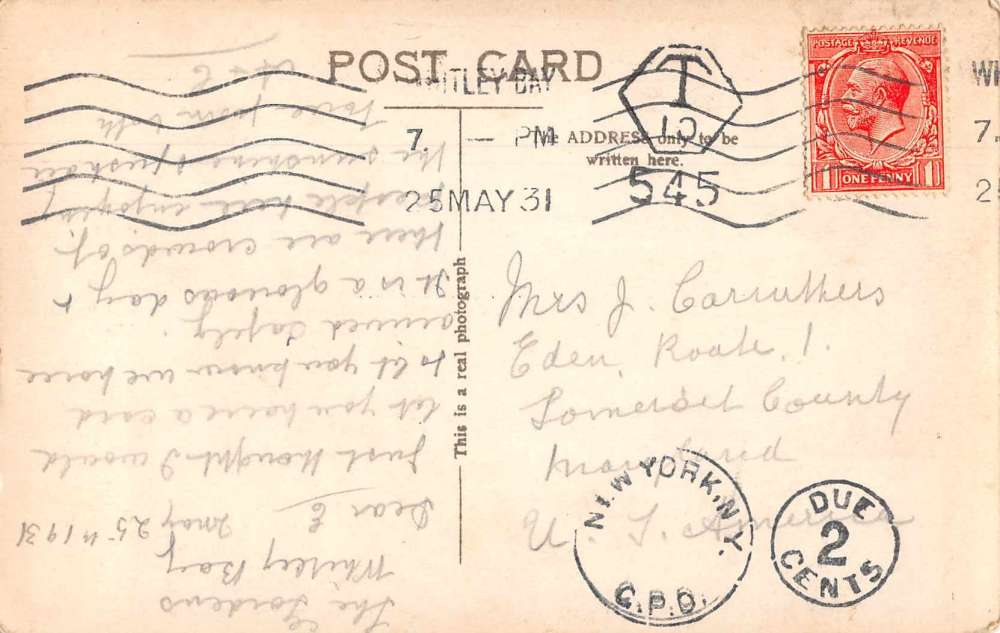 POST CARD
WHITLEY BAY
7. — PM
25 MAY 31
T
10
545
The ADDRESS only to be
written here.
POSTAGE REVENUE
1 ONE PENNY 1
WI
7.
2
Mrs J. Carruthers
Eden, Route, 1.
Somerset County
Maryland
U. S. America
NEW YORK, N.Y.
G.P.O.
DUE
2
CENTS
This is a real photograph
The Gardens
Whitley Bay
May 25th 1931
Dear E
Just thought I would
let you have a card
to let you know we have
arrived safely.
It is a glorious day &
there are crowds of
people here enjoying
the sunshine & fresh air
love from both